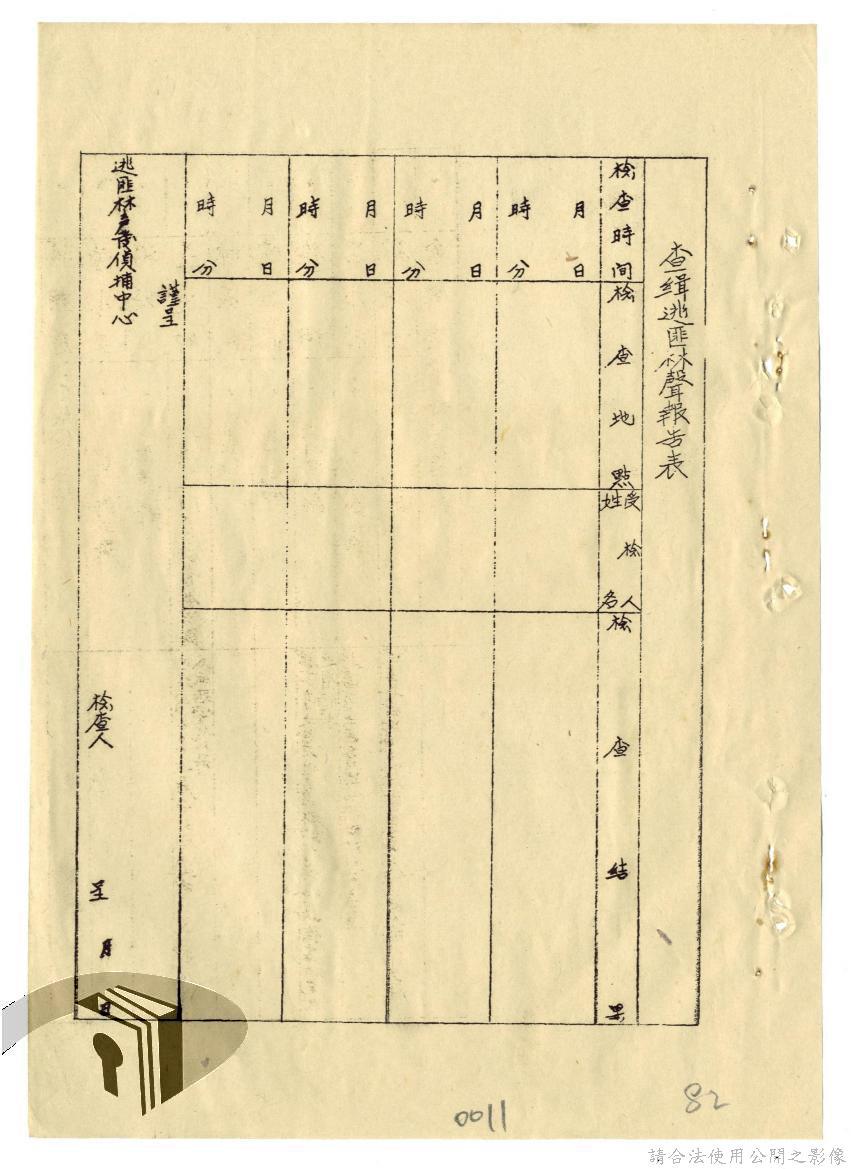 查緝逃匪林聲報告表
檢查時间
檢查地點
受檢人
姓名
檢查結果
月 日
時 分
月 日
時 分
月 日
時 分
月 日
時 分
謹呈
逃匪林 偵捕中心
檢查人 呈 月 日
0011
82
請合法使用公開之影像